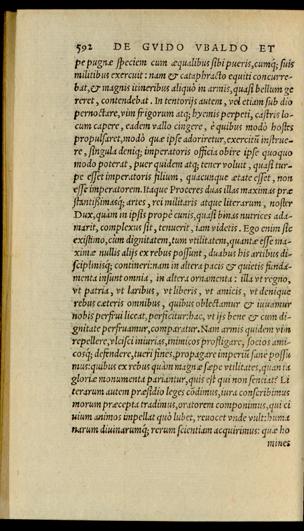 592 DE GVIDO VBALDO ET
pe pugnæ speciem cum æqualibus sibi pueris, cumq; suis
militibus exercuit: nam & cataphracto equiti concurre-
bat, & magnis itineribus aliquò in armis, quasi bellum ge
reret, contendebat. In tentorijs autem, vel etiam sub dio
pernoctare, vim frigorum atq; hyemis perpeti, castris lo-
cum capere, eadem vallo cingere, è quibus modò hostes
propulsaret, modò quæ ipse adoriretur, exercitũ instrue-
re, singula deniq; imperatoris officia obire ipse quoquo
modo poterat, puer quidem atq; tener volut, quasi tur-
pe esset imperatoris filium, quacunque ætate esset, non
esse imperatorem. Itaque Proceres duas illas maximas præ
stantißimasq; artes, rei militaris atque literarum, noster
Dux, quàm in ipsis propè cunis, quasi binas nutrices ada-
marit, complexus sit, tenuerit, iam videtis. Ego enim sic
existimo, cum dignitatem, tum vtilitatem, quantæ esse ma-
ximæ nullis alijs ex rebus possunt, duabus his artibus di-
sciplinisq; contineri: nam in altera pacis & quietis funda-
menta insunt omnia, in altera ornamenta: illa vt regno,
vt patria, vt laribus, vt liberis, vt amicis, vt denique
rebus cæteris omnibus, quibus oblectamur & iuuamur
nobis perfrui liceat, perficitur: hac, vt ijs bene & cum di-
gnitate perfruamur, comparatur. Nam armis quidem vim
repellere, vlcisci iniurias, inimicos profligare, socios ami-
cosq; defendere, tueri fines, propagare imperiũ sane possu
mus: quibus ex rebus quàm magnæ sæpe vtilitates, quanta
gloriæ monumenta pariantur, quis est qui non sentiat? Li
terarum autem præsidio leges cõdimus, iura conscribimus
morum præcepta tradimus, oratorem componimus, qui ci
uium animos impellat quò lubet, reuocet vnde vult: huma
narum diuinarumq; rerum scientiam acquirimus: quæ ho
mines